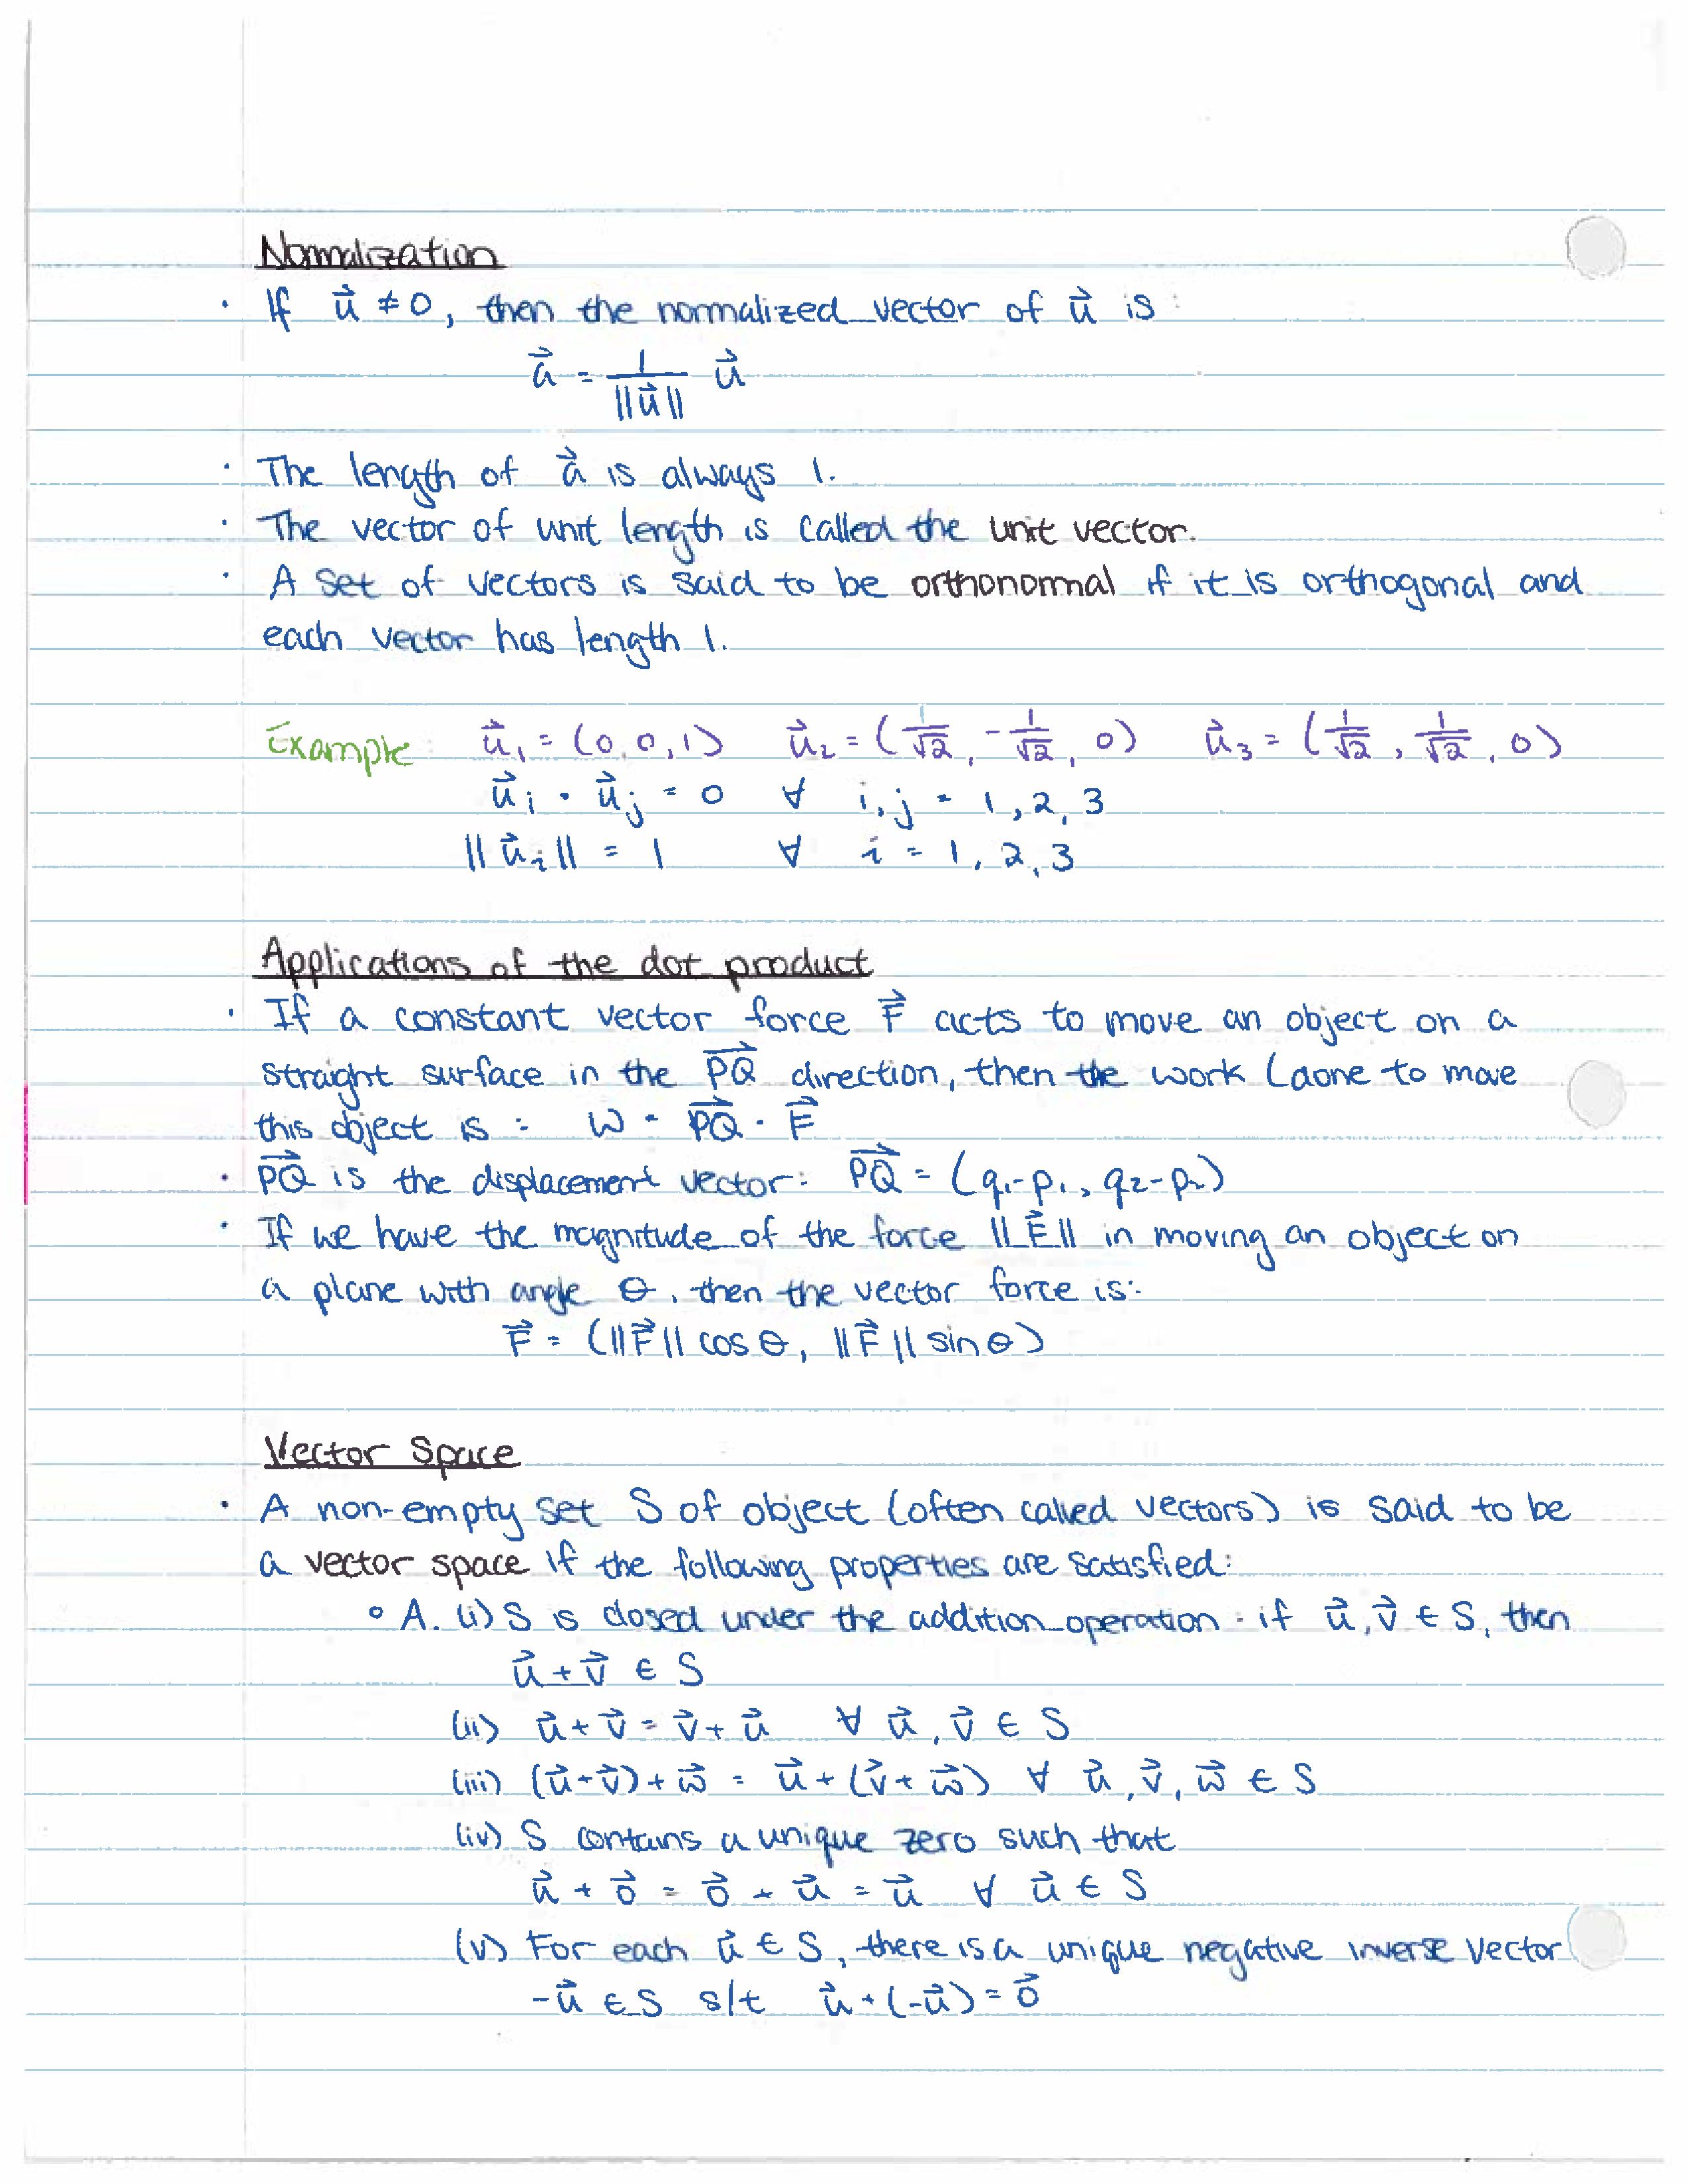 Normalization
· If u⃗ ≠ 0, then the normalized vector of u⃗ is:
a⃗ = 1/||u⃗|| u⃗
· The length of a⃗ is always 1.
· The vector of unit length is called the unit vector.
· A set of vectors is said to be orthonormal if it is orthogonal and
each vector has length 1.
Example: u⃗₁ = (0,0,1) u⃗₂ = (1/√2, -1/√2, 0) u⃗₃ = (1/√2, 1/√2, 0)
u⃗ᵢ · u⃗ⱼ = 0 ∀ i,j = 1,2,3
||u⃗ᵢ|| = 1 ∀ i = 1,2,3
Applications of the dot product
· If a constant vector force F⃗ acts to move an object on a
straight surface in the PQ⃗ direction, then the work (done to move
this object is: W = PQ⃗ · F⃗
· PQ⃗ is the displacement vector: PQ⃗ = (q₁-p₁, q₂-p₂)
· If we have the magnitude of the force ||F⃗|| in moving an object on
a plane with angle θ, then the vector force is:
F⃗ = (||F⃗|| cos θ, ||F⃗|| sin θ)
Vector Space
· A non-empty set S of object (often called vectors) is said to be
a vector space if the following properties are satisfied:
∘ A. (i) S is closed under the addition operation: if u⃗,v⃗ ∈ S, then
u⃗+v⃗ ∈ S
(ii) u⃗+v⃗ = v⃗+u⃗ ∀ u⃗,v⃗ ∈ S
(iii) (u⃗+v⃗)+w⃗ = u⃗+(v⃗+w⃗) ∀ u⃗,v⃗,w⃗ ∈ S
(iv) S contains a unique zero such that
u⃗ + 0⃗ = 0⃗ + u⃗ = u⃗ ∀ u⃗ ∈ S
(v) For each u⃗ ∈ S, there is a unique negative inverse vector
-u⃗ ∈ S s/t u⃗+(-u⃗) = 0⃗